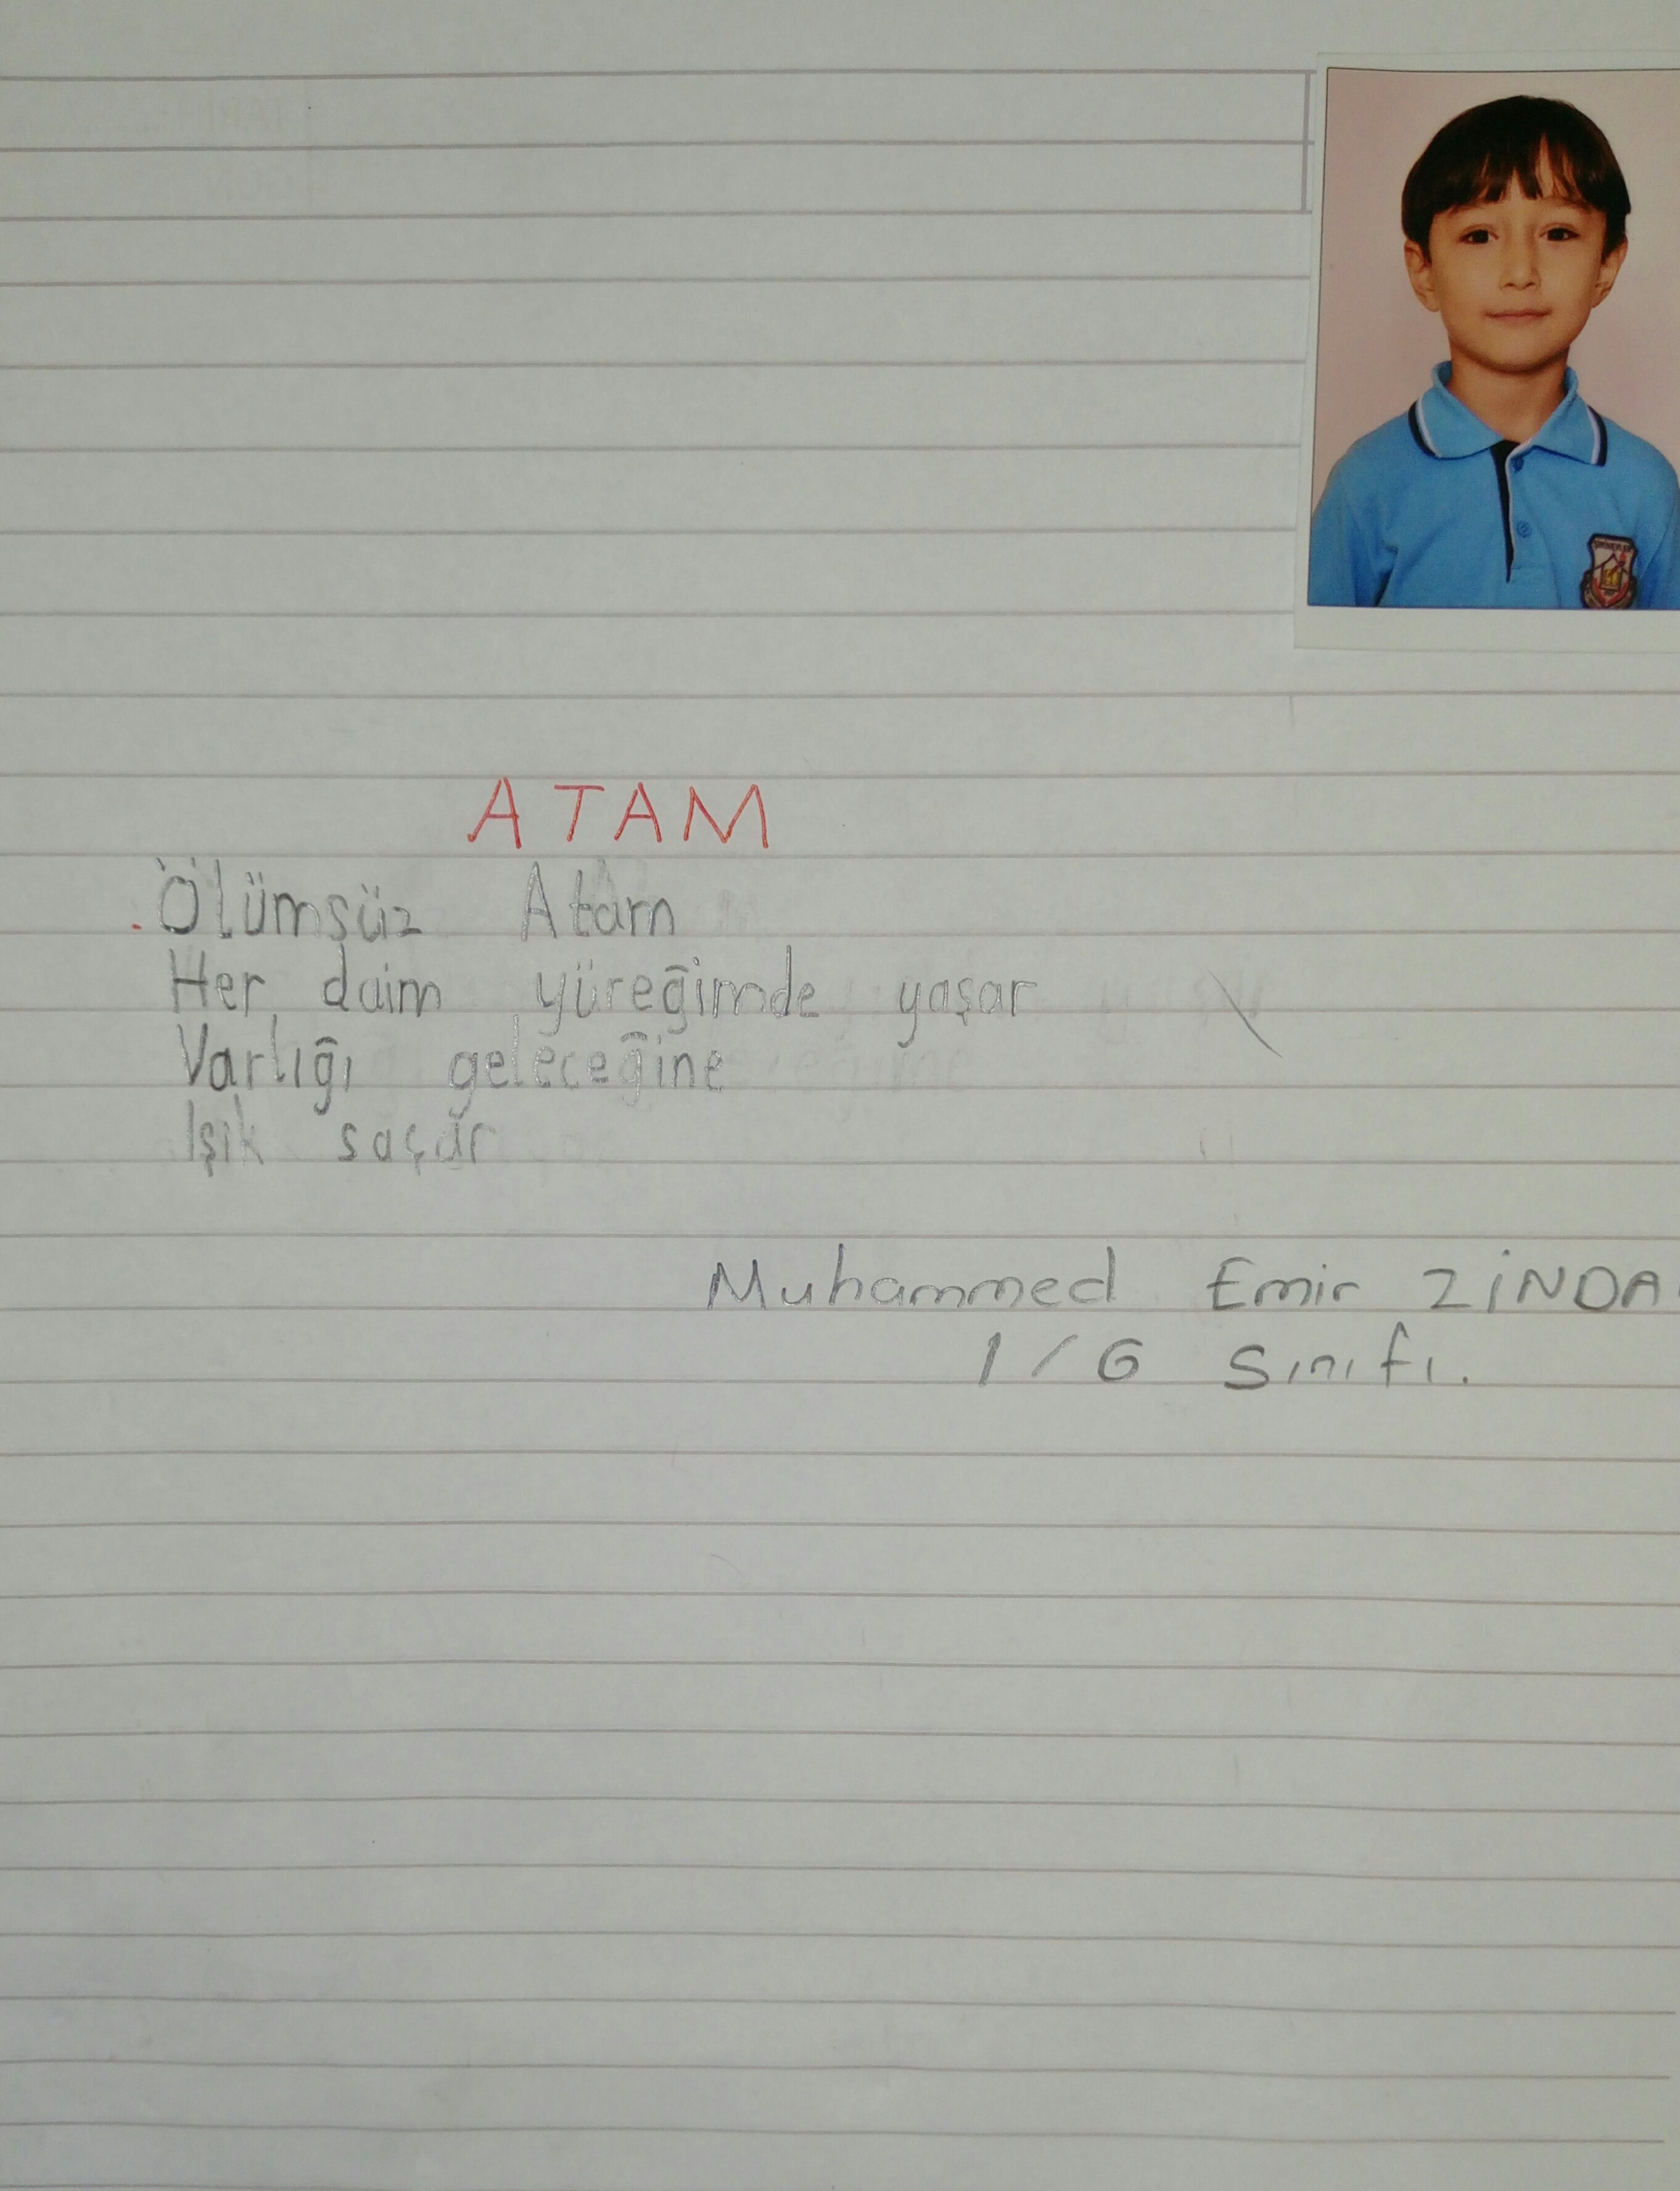 ATAM
Ölümsüz Atam
Her daim yüreğimde yaşar
Varlığı geleceğine
Işık saçar
Muhammed Emir ZİNDA
1/G Sınıfı.